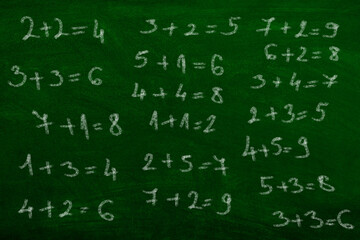 2+2=4
3+3=6
7+1=8
1+3=4
4+2=6
3+2=5
5+1=6
4+4=8
1+1=2
2+5=7
7+2=9
7+2=9
6+2=8
3+4=7
2+3=5
4+5=9
5+3=8
3+3=6